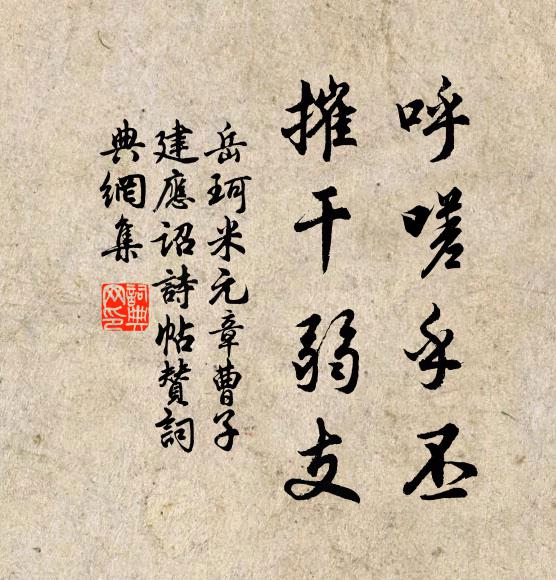 呼嗟乎丕
摧干弱支
岳珂米元章曹子
建應詔詩帖贊詞
典網集
詞典網印